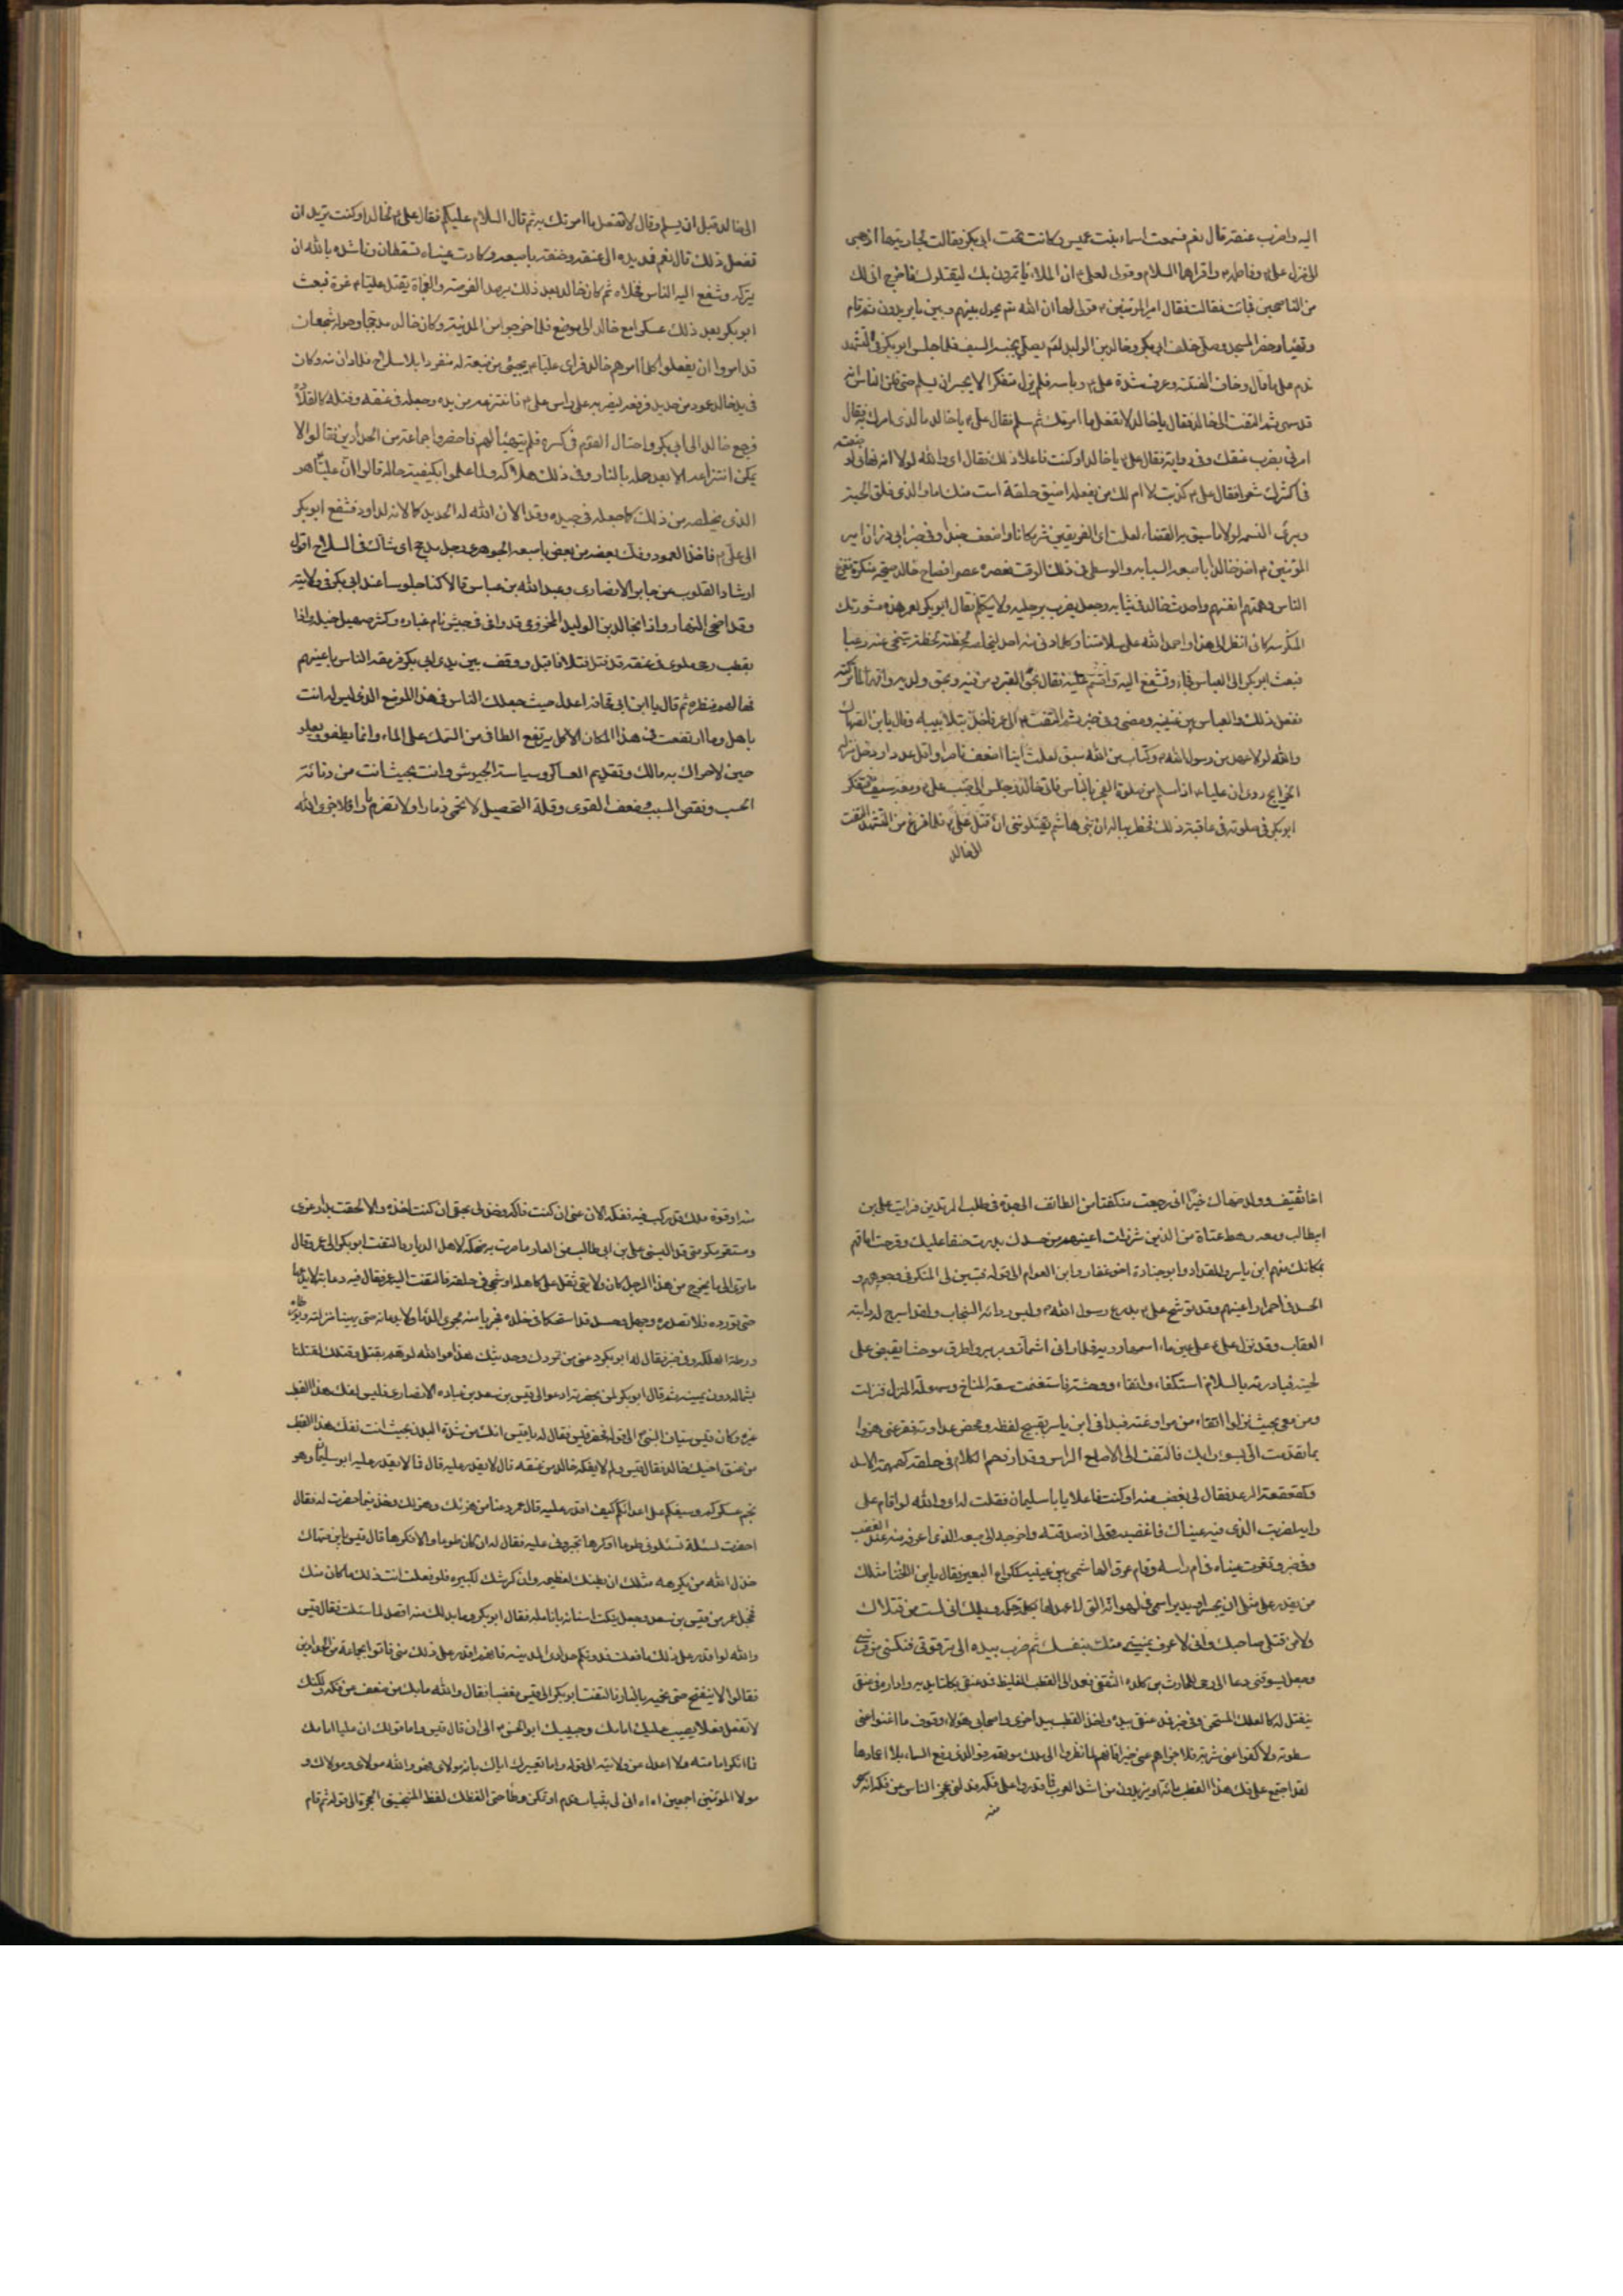 اليه واضرب عنقه قال نعم فسمعت اسماء بنت عميس وكانت تحت ابي بكر فقالت لجاريتها اذهبي
الى منزل علي وفاطمة واقراهما السلام وقولي لعلي ان الملاء ياتمرون بك ليقتلوك فاخرج اني لك
من الناصحين فجائت فقالت فقال امير المؤمنين قولي لها ان الله يحول بينهم وبين ما يريدون ثم قام
وتهيأ وحضر المسجد وصلى خلف ابي بكر وخالد بن الوليد يصلي بجنبه السيف فلما جلس ابو بكر في التشهد
ندم على ما قال وخاف الفتنة وعرف شدة علي وباسه فلم يزل متفكرا لا يجسر ان يسلم حتى ظن الناس انه
قد سهى ثم التفت الى خالد فقال يا خالد لا تفعل ما امرتك ثم سلم فقال علي يا خالد ما الذي امرك به فقال
امرني بضرب عنقك وفي رواية فقال علي يا خالد او كنت فاعلا ذلك فقال اي والله لولا انه نهاني لو
ضعته
في اكثرك شعرا فقال علي كذبت لا ام لك من يفعله اضيق حلقة است منك اما والذي فلق الحبة
وبرئ النسمه لولا ما سبق به القضاء لعلمت اي الفريقين شر مكانا واضعف جندا وفي خبر ابي ذر ان امير
المؤمنين اخذ خالدا باصبعه السبابه والوسطى في ذلك الوقت فعصره عصرا فصاح خالد صيحة منكرة ففزع
الناس وهمتهم انفسهم واحدث خالد في ثيابه وجعل يضرب برجليه ولا يتكلم فقال ابو بكر لعمر هذه مشورتك
المنكوسه كاني انظر الى هذا واحمد الله على سلامتنا وكلما دنى منه احد ليخلصه لحظه لحظة تنحى عنه رعبا
فبعث ابو بكر الى العباس فجاء وتشفع اليه واقسم عليه فقال بحق القبر ومن فيه وبحق ولديه وامهما الا تركته
ففعل ذلك وقبل العباس بين عينيه ومضى وفي خبر ثم التفت الى عمر فاخذ بتلابيبه وقال يا بن الصهاك
والله لولا عهد من رسول الله وكتاب من الله سبق لعلمت اينا اضعف ناصرا واقل عددا ودخل منزله
الخرايج روى ان عليا اذا سلم من صلوة الفجر بالناس فاتى خالد وجلس الى جنب علي ومعه سيف فتفكر
ابو بكر في صلوته في عاقبة ذلك فخطر بباله ان بني هاشم يقتلونني ان قتل علي فلما فرغ من التشهد التفت
الى خالد
الى خالد قبل ان يسلم وقال لا تفعل ما امرتك به ثم قال السلام عليكم فقال علي لخالد او كنت تريد ان
تفعل ذلك قال نعم فمد يده الى عنقه وخنقه باصبعه وكادت عيناه تسقطان وناشده بالله ان
يتركه وشفع اليه الناس فخلاه ثم كان خالد بعد ذلك يرصد الفرصة والفجاة يقتل عليا غرة فبعث
ابو بكر بعد ذلك عسكرا مع خالد الى موضع فلما خرجوا من المدينة وكان خالد مدججا وحوله شجعان
قد امروا ان يفعلوا كلما امرهم خالد فراى عليا يجيئ من ضيعة له منفردا بلا سلاح فلما دنى منه وكان
في يد خالد عمود من حديد فرفعه ليضربه على راس علي فانتزعه من يده وجعله في عنقه وفتله كالقلادة
فرجع خالد الى ابي بكر واحتال القوم في كسره فلم يتهيأ لهم فاحضروا جماعة من الحدادين فقالوا لا
يمكن انتزاعه الا بعد حله بالنار وفي ذلك هلاكه ولما علموا بكيفية حاله قالوا ان عليا هو
الذي يخلصه من ذلك كما جعله في جيده وقد الان الله له الحديد كما الانه لداود فشفع ابو بكر
الى علي فاخذ العمود وفك بعضه من بعض باصبعه الجوهري رجل مدجج اي شاك في السلاح اقول
ارشاد القلوب عن جابر الانصاري وعبد الله بن عباس قالا كنا جلوسا عند ابي بكر في ولايته
وقد اضحى النهار واذا بخالد بن الوليد المخزومي قد وافى في جيش قام غباره وكثر صهيل خيله واذا
بقطب رحى ملوى في عنقه قد فتل فتلا فاقبل ووقف بين يدي ابي بكر فرمقه الناس باعينهم
فهالهم منظره ثم قال يا ابن ابي قحافة اعدل حيث جعلك الناس في هذا الموضع الذي ليس له انت
باهل وما ارتفعت في هذا المكان الا كما يرتفع الطافي من السمك على الماء وانما يطفو ويعلو
حين لا حراك به مالك وتقديم العساكر وسياسة الجيوش وانت بحيث انت من دنائة
الحسب ونقص النسب وضعف القوى وقلة التحصيل لا تحمي ذمارا ولا تضرم نارا فلا جزى الله
اخا ثقيف وولد صهاك خيرا اني رجعت منكفئا من الطائف الى جدة في طلب المرتدين فرايت علي بن
ابيطالب ومعه رهط عتاة من الذين شزرت اعينهم من حسدك بدرت حنقا عليك وقرحت اماقهم
بمكانك منهم ابن ياسر والمقداد وابو جنادة اخو غفار وابن العوام الى قوله فتبين لي المنكر في وجوههم و
الحسد في احمرار اعينهم وقد توشح علي بدرع رسول الله ولبس ردائه السحاب ولقد اسرج له دابته
العقاب وقد نزل علي على عين ماء اسمها رويه فلما رانى اشمأز وبربر واطرق موحشا يقبض على
لحيته فبادرته بالسلام استكفاء واتقاء ووحشة فاستغنمت سعة المناخ وسهولة المنزل فنزلت
ومن معي بحيث نزلوا اتقاء من مراوغته فبدانى ابن ياسر بقبيح لفظه ومحض عداوته فقرعني هزوا
بما تقدمت الي بسوء رايك فالتفت الى الاصلع الراس وقد ازدحم الكلام في حلقه كهمهمة الاسد
وكقعقعة الرعد فقال لي بغضب منه او كنت فاعلا يا با سليمان فقلت له اي والله لو اقام على
رايه لضربت الذي فيه عيناك فاغضبه قولي اذ صدقته واخرجه الى طبعه الذي اعرفه منه عند الغضب
من يقدر على مثلي ان يجسر او يدير اسمى في لهواته التي لا عهد لها بكلمة حكمة ويلك اني لست من قتلاك
ولا من قتلى صاحبك واني لاعرف بمنيتي منك بنفسك ثم ضرب بيده الى ترقوتي فنكسني عن فرسي
وجعل يسوقني دعا الى رحى للحارث بن كلده الثقفي فعمد الى القطب الغليظ فمد عنقي بكلتا يديه وادار في عنقي
ينفتل له كالعلك المستحن وفي خبر مد عنقي بيده واخذ القطب بيد اخرى واصحابي هؤلاء وقوف ما اغنوا عني
سطوته ولا كفوا عني شرته فلا جزاهم عني خيرا فانهم لما نظروا الى ملك موتهم فوالذي رفع السماء بلا اعمادها
لقد اجتمع على فك هذا القطب مائة او يزيدون من اشد العرب فما قدروا على فكه فدلني عجز الناس عن فكه انه سحر
منه
منه او قوة ملك قد ركب فيه ففكه الان عني ان كنت فاكه وخذ لي بحقي ان كنت اخذه والا لحقت بدار عزي
ومستقر مكرمتي قد البسني علي بن ابي طالب من العار ما صرت به ضحكة لاهل الديار فالتفت ابو بكر الى عمر وقال
ما ترى الى ما يخرج من هذا الرجل كان ولايتي ثقل على كاهله او شجي في حلقه فالتفت اليه عمر فقال فيه دعابة لا يدعها
حتى تورده فلا تصدره وجهل وحسد قد استحكما في خلده فجريا منه مجرى الدماء لا يدعانه حتى يهينا منزلته ويورطاه
ورطة الهلكه وفي خبر فقال له ابو بكر دعني من تمردك وحديثك هذا فوالله لو هم بقتلي وقتلك لقتلنا
بشماله دون يمينه ثم قال ابو بكر لمن بحضرته ادعوا لي قيس بن سعد بن عباده الانصاري فليس لفك هذا القطب
غيره وكان قيس سياف النبي الى قوله فحضر قيس فقال له يا قيس انك من شدة البدن بحيث انت ففك هذا القطب
من عنق اخيك خالد فقال قيس ولم لا يفكه خالد من عنقه قال لا يقدر عليه قال فما لا يقدر عليه ابو سليمان وهو
نجم عسكركم وسيفكم على اعدائكم كيف اقدر عليه قال عمر دعنا من هزئك وهزلك وخذ فيما حضرت له فقال
احضرت لمسئلة تسئلونى طوعا او كرها تجبروني عليه فقال له ان كان طوعا والا فكرها قال قيس يا بن صهاك
خذل الله من يكرهه مثلك ان بطنك لعظيمه وان كرشك لكبيره فلو فعلت انت ذلك ما كان منك
فخجل عمر من قيس بن سعد وجعل ينكت اسنانه بانامله فقال ابو بكر وما بذلك منه اقصد لما سئلت فقال قيس
والله لو اقدر على ذلك ما فعلت فدونكم حدادى المدينه فانهم اقدر على ذلك مني فاتوا بجماعة من الحدادين
فقالوا لا ينفتح حتى نحميه بالنار فالتفت ابو بكر الى قيس مغضبا فقال والله ما بك من ضعف من فكه ولكنك
لا تفعل فعلا يعيب عليك امامك وحبيبك ابو الحسن الى ان قال قيس واما قولك ان عليا امامك
فما انكر امامته ولا اعدل عن ولايته الى قوله واما تعييرك اياك بانه مولاي هو والله مولاي ومولاك و
مولا المؤمنين اجمعين اه اه انى لي بثبات قدم او تمكن وطأ حتى الفظك لفظ المنجنيق الحجرة الى قوله ثم قام